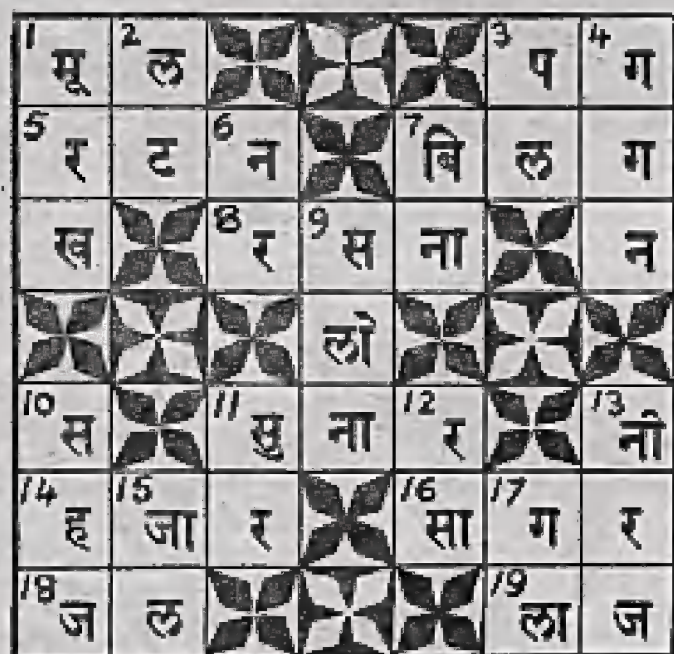 1 मू 2 ल 3 प 4 ग
5 र ट 6 न 7 बि ल ग
ख 8 र 9 स ना न
लो
10 स 11 सु ना 12 र 13 नी
14 ह 15 जा र 16 सा 17 ग र
18 ज ल 19 ला ज